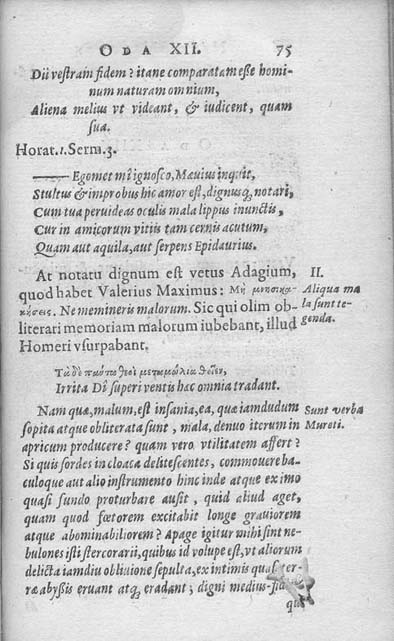 ODA XII. 75
Dii vestram fidem? itane comparatam eße homi-
num naturam omnium,
Aliena melius vt videant, & iudicent, quam
sua.
Horat.1.Serm.3.
Egomet mî ignosco, Mævius inquit,
Stultus & improbus hic amor est, dignusq; notari,
Cum tua pervideas oculis mala lippus inunctis,
Cur in amicorum vitiis tam cernis acutum,
Quam aut aquila, aut serpens Epidaurius.
At notatu dignum est vetus Adagium, II.
quod habet Valerius Maximus: Μὴ μνησικα- Aliqua ma
κήσεις. Ne memineris malorum. Sic qui olim ob- la sunt te-
literari memoriam malorum iubebant, illud genda.
Homeri vsurpabant.
Τὰ δὲ πάντα θεοὶ μεταμώλια θεῖεν,
Irrita Dî superi ventis hæc omnia tradant.
Nam quæ, malum, est insania, ea, quæ iamdudum Sunt verba
sopita atque obliterata sunt, mala, denuo iterum in Mureti.
apricum producere? quam vero vtilitatem affert?
Si quis sordes in cloaca delitescentes, commovere ba-
culoque aut alio instrumento hinc inde atque ex imo
quasi fundo proturbare ausit, quid aliud aget,
quam quod fœtorem excitabit longe graviorem
atque abominabiliorem? Apage igitur mihi sint ne-
bulones isti stercorarii, quibus id volupe est, vt aliorum
delicta iamdiu oblivione sepulta, ex intimis quasi ter-
ræ abyßis eruant atq; eradant; digni medius-fidi
qui